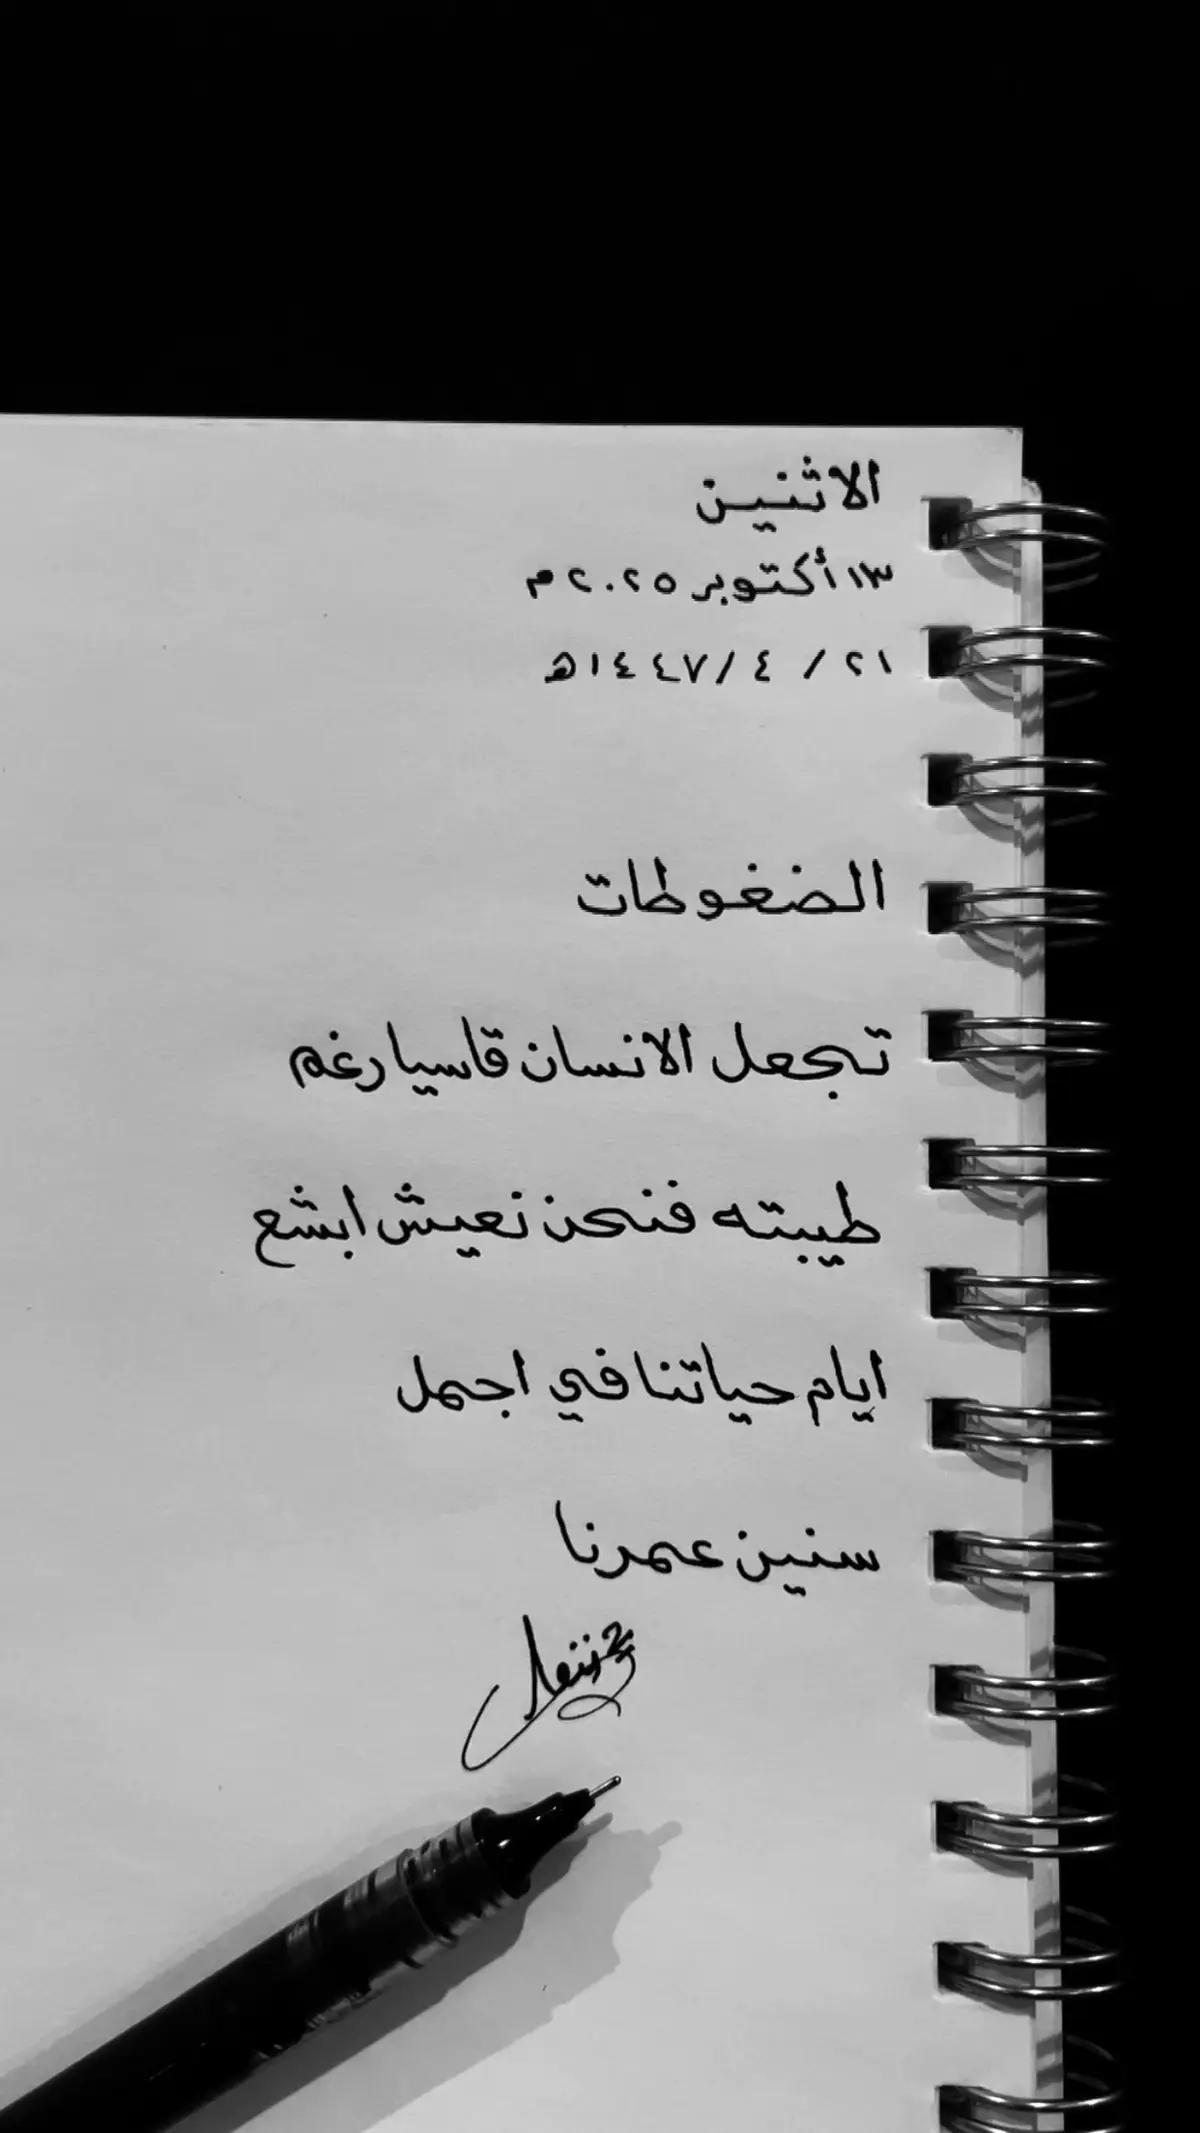 الاثنين
١٣ أكتوبر ٢٠٢٥ م
٢١ / ٤ / ١٤٤٧ هـ
الضغوطات
تجعل الانسان قاسيا رغم
طيبته فنحن نعيش ابشع
ايام حياتنا في اجمل
سنين عمرنا